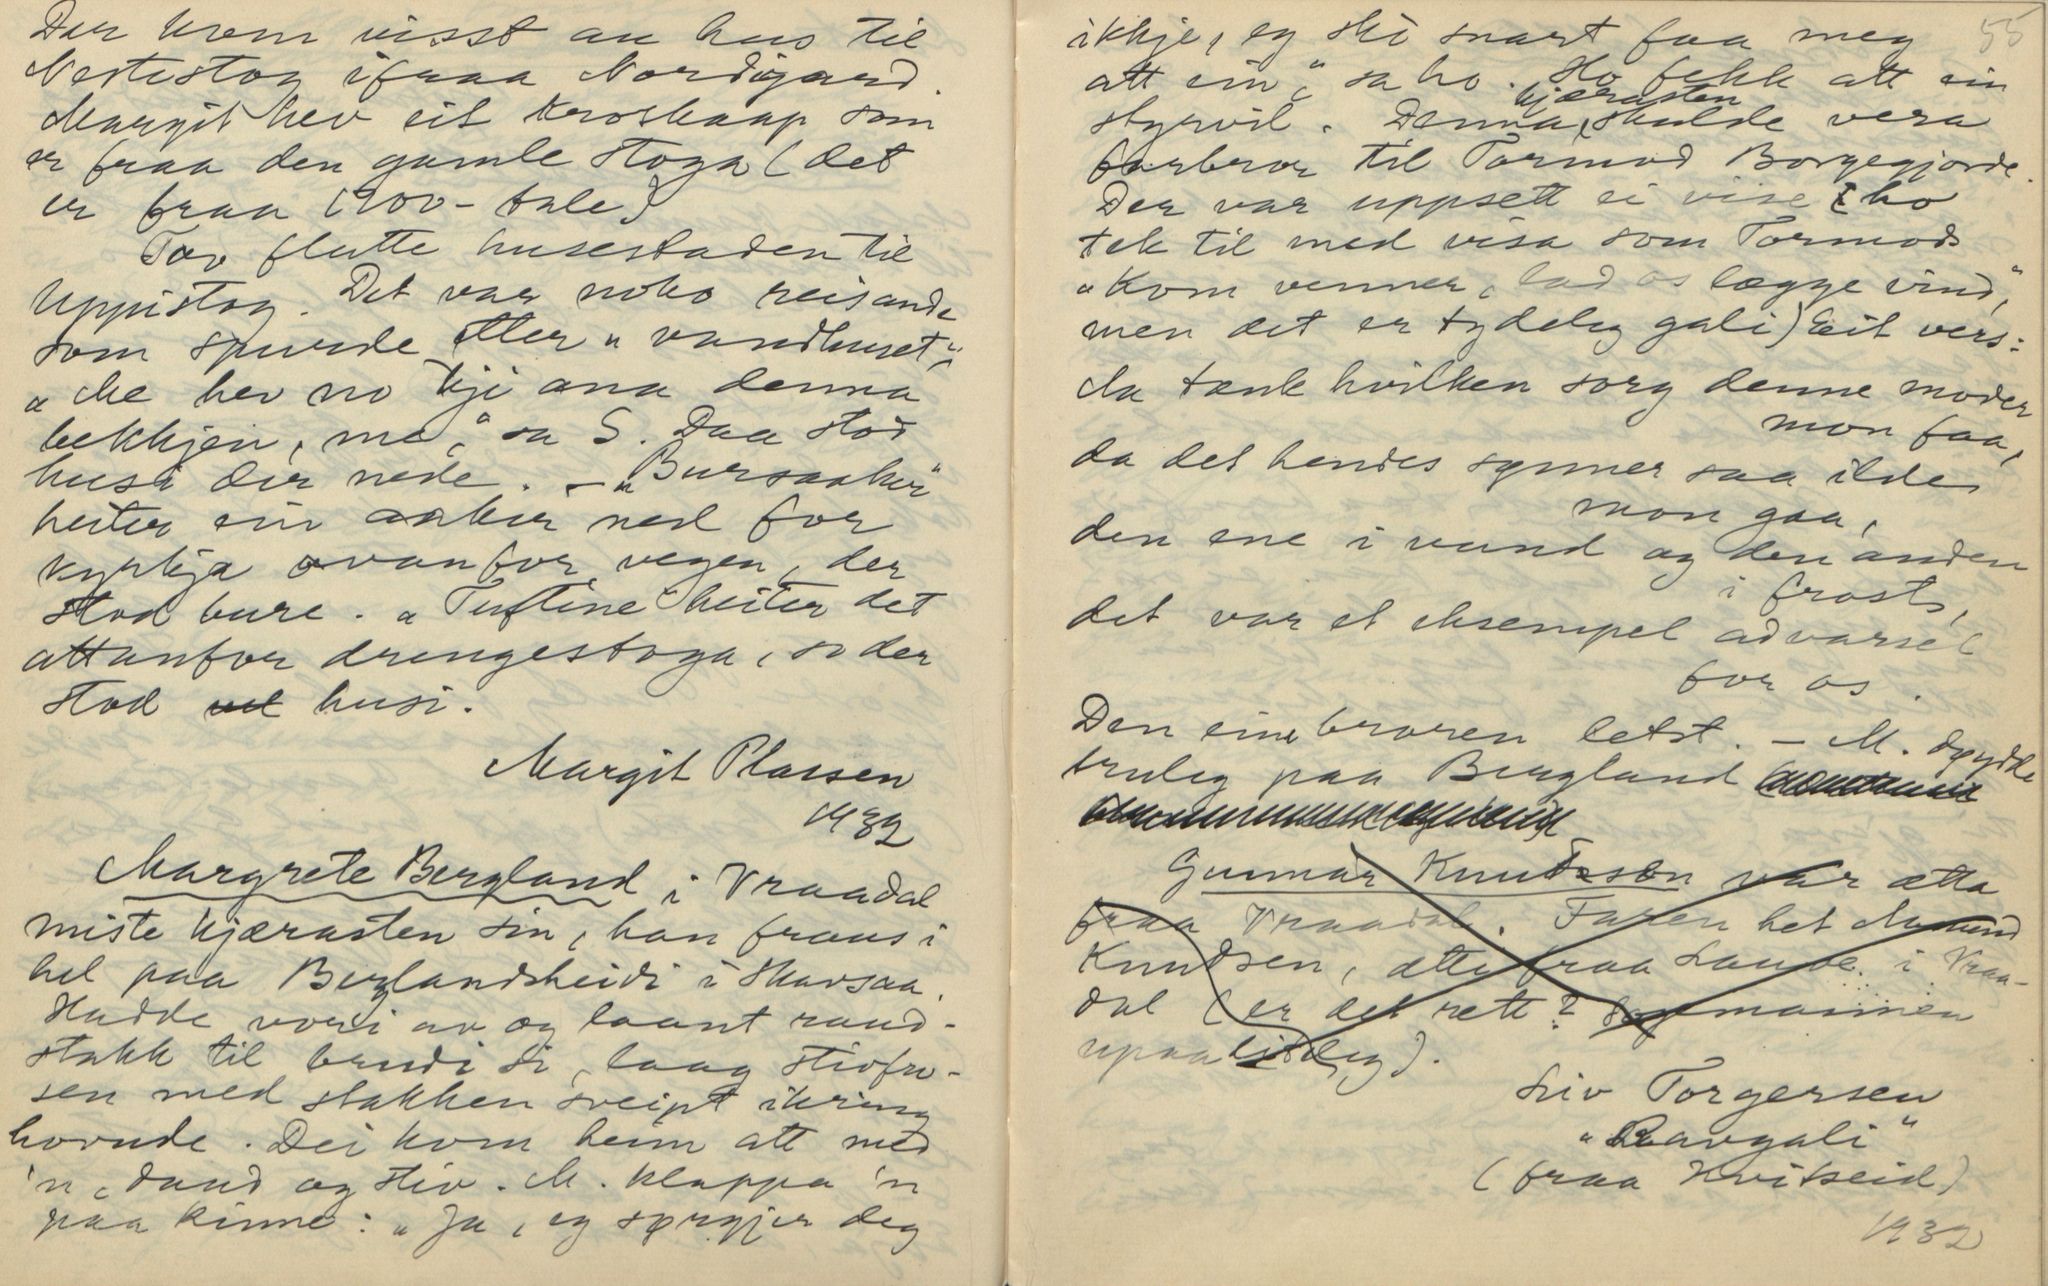 Der kom visst au hus til
Nestistog ifraa Nordigard.
Margit hev eit kroskaap som
er fraa den gamle stoga (det
er fraa 1700-tale)
Tov flutte husestaden til
Uppistog. Det var noko reisande
som spurde etter "vandhuset",
"Me hev no kji ana denna
bekkjen, me," sa S. Daa stod
husi der nede. - "Bursaaker"
heiter ein aaker ned for
kyrkja ovanfor vegen, der
stod bure. "Tuftine" heiter det
attanfor drengestoga, so der
stod husi.
Margit Plassen
1932
Margrete Bergland i Vraadal
miste kjærasten sin, han fraus i
hel paa Berglandsheidi i Skarsaa.
Hadde vori av og laant raud-
stakk til brudi si, laag stivfro-
sen med stakken sveipt ikring
hovude. Dei kom heim att med
'n, daud og stiv. M. klappa 'n
paa kinne: "Ja, eg sørgjer deg
55
ikkje, eg ski snart faa meg
att ein," sa ho. Ho fekk att ein
styrvil. Denna kjærasten skulde vera
farbror til Tormod Borgegjorde.
Der var uppsett ei vise (ho
tek til med visa som Tormods
"Kom venner, lad os lægge vind",
men det er tydeleg gali) Eit vers:
Aa tenk hvilken sorg denne moder
mon faa,
da det hendes synner saa ilde
mon gaa,
den ene i vand og den anden
i frost,
det var et eksempel advarsel
for os.
Den eine broren letst. - M. spydde
truleg paa Bergland
Gunnar Knudsson var ætta
fraa Vraadal. Faren het Aamund
Knudsen, ætti fraa Lande i Vraa-
dal (er det rett? Sogemannen
upaaliteleg).
Liv Torgersen
"Ravgali"
(fraa Kviteseid)
1932